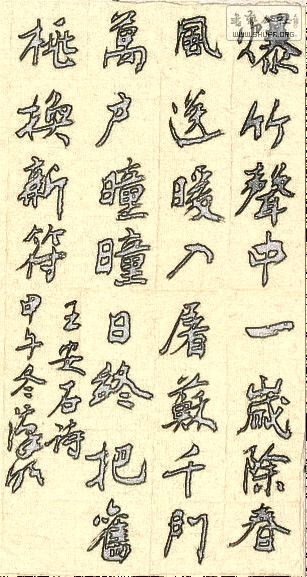 爆竹聲中一歲除春
風送暖入屠蘇千門
萬户曈曈日總把舊
桃換新符
王安石诗
甲午冬